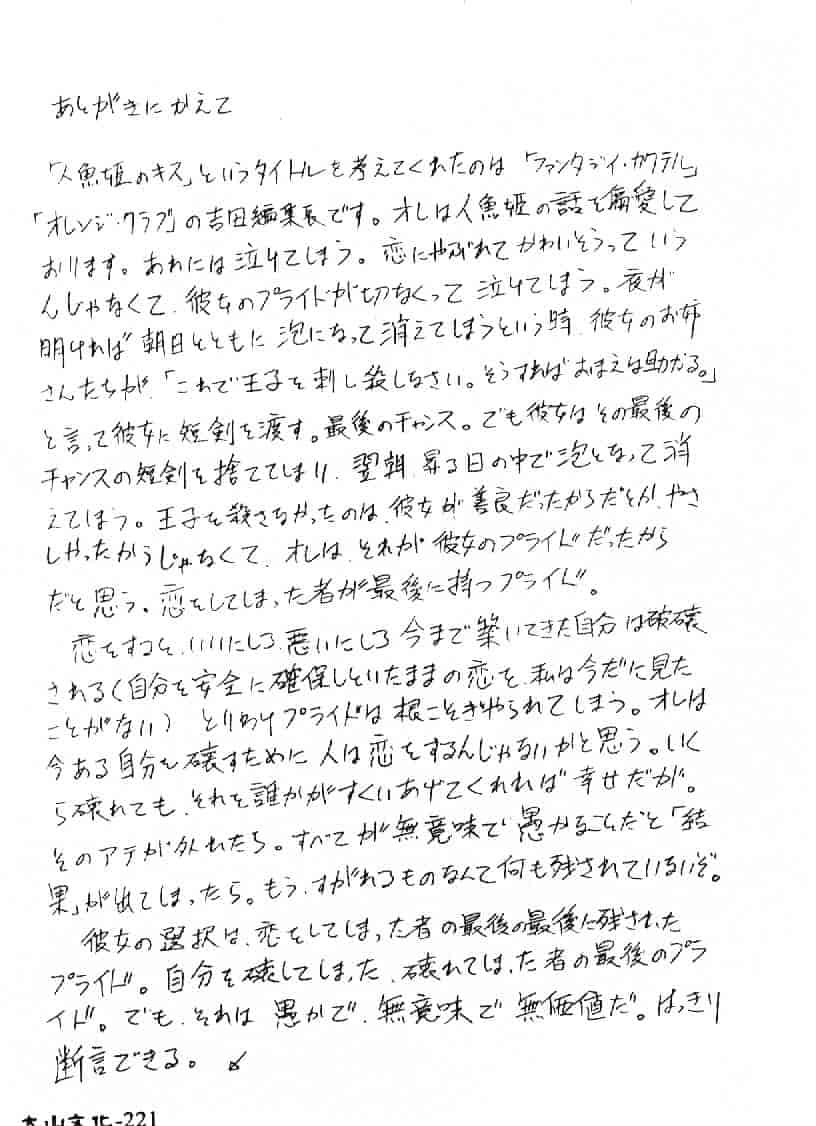 あとがきにかえて
「人魚姫のキス」というタイトルを考えてくれたのは「ファンタジイ・カクテル」
「オレンジ・クラブ」の吉田編集長です。オレは人魚姫の話を偏愛して
おります。あれには泣けてしまう。恋にやぶれてかわいそうっていう
んじゃなくて、彼女のプライドが切なくって泣けてしまう。夜が
明ければ朝日とともに泡になって消えてしまうという時、彼女のお姉
さんたちが、「これで王子を刺し殺しなさい。そうすればおまえは助かる。」
と言って彼女に短剣を渡す。最後のチャンス。でも彼女はその最後の
チャンスの短剣を捨ててしまい、翌朝、昇る日の中で泡となって消
えてしまう。王子を殺さなかったのは、彼女が善良だったからだとか、やさ
しかったからじゃなくて、オレは、それが彼女のプライドだったから
だと思う。恋をしてしまった者が最後に持つプライド。
恋をすると、いいにしろ、悪いにしろ、今まで築いてきた自分は破壊
される(自分を安全に確保しといたままの恋を、私は今だに見た
ことがない) とりわけプライドは根こそぎやられてしまう。オレは
今ある自分を壊すために人は恋をするんじゃないかと思う。いく
ら壊れても、それを誰かがすくいあげてくれれば幸せだが。
そのアテが外れたら。すべてが無意味で愚かなことだと「結
果」が出てしまったら。もう、すがれるものなんて何も残されていないぞ。
彼女の選択は、恋をしてしまった者の最後の最後に残された
プライド。自分を壊してしまった、壊れてしまった者の最後のプラ
イド。でも、それは愚かで、無意味で無価値だ。はっきり
断言できる。
-221